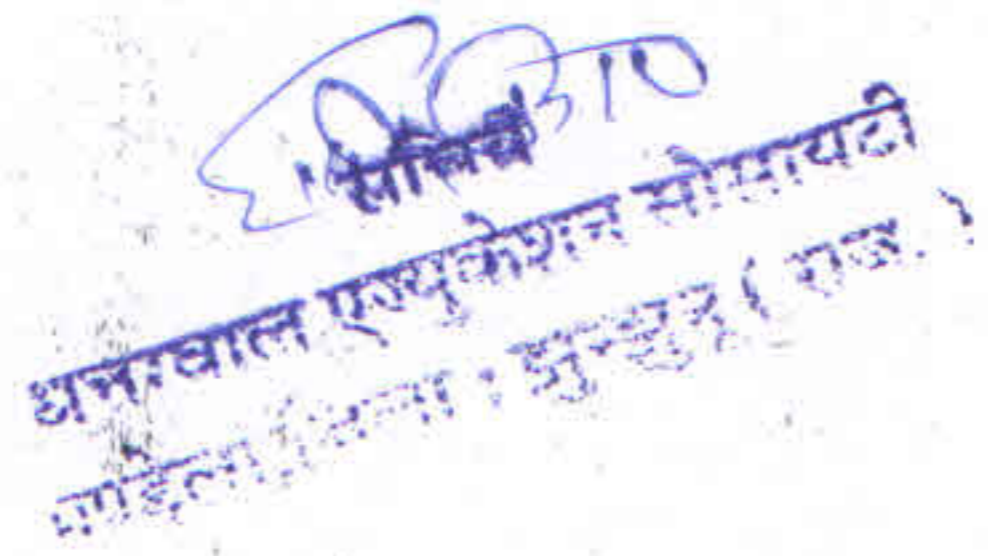 सचिव
धत्तरवाल एज्यूकेशन सोसायटी
जिला : झुन्झुनू ( राज. )